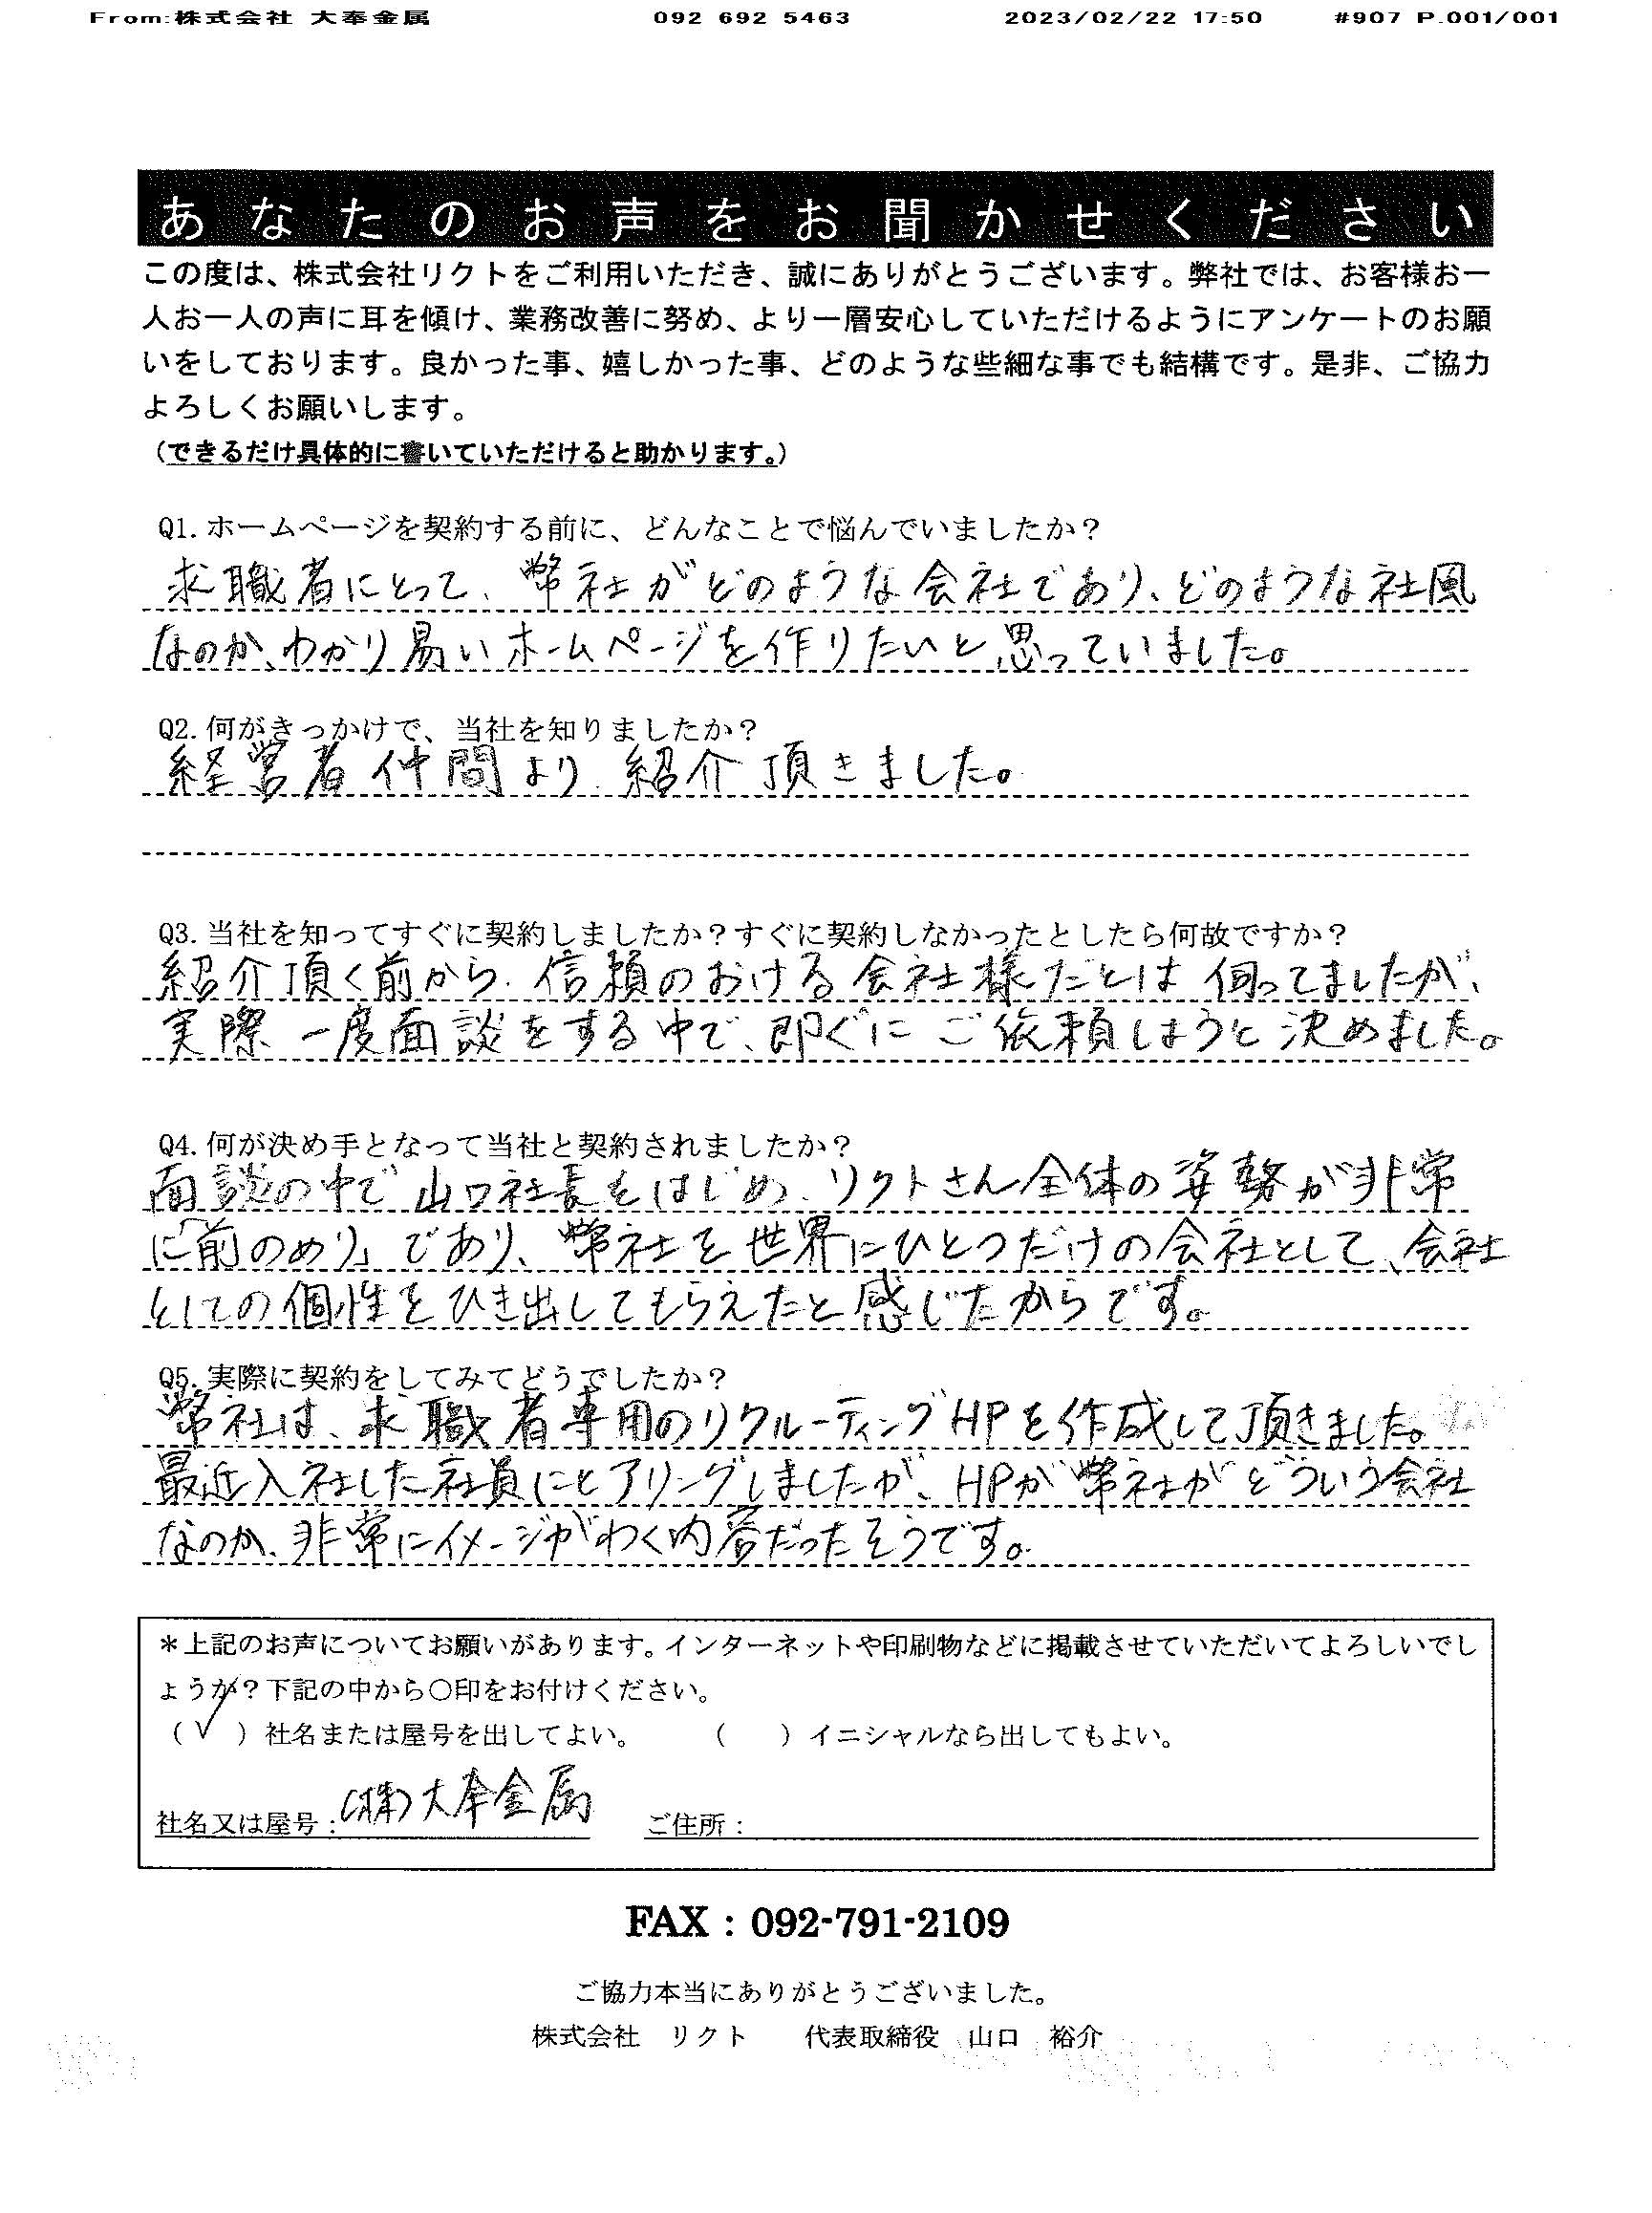 From:株式会社 大奉金属 092 692 5463 2023/02/22 17:50 #907 P.001/001
あなたのお声をお聞かせください
この度は、株式会社リクトをご利用いただき、誠にありがとうございます。弊社では、お客様お一
人お一人の声に耳を傾け、業務改善に努め、より一層安心していただけるようにアンケートのお願
いをしております。良かった事、嬉しかった事、どのような些細な事でも結構です。是非、ご協力
よろしくお願いします。
（できるだけ具体的に書いていただけると助かります。）
Q1. ホームページを契約する前に、どんなことで悩んでいましたか？
求職者にとって、弊社がどのような会社であり、どのような社風
なのか、わかり易いホームページを作りたいと思っていました。
Q2. 何がきっかけで、当社を知りましたか？
経営者仲間より、紹介頂きました。
Q3. 当社を知ってすぐに契約しましたか？すぐに契約しなかったとしたら何故ですか？
紹介頂く前から、信頼のおける会社様だとは伺ってましたが、
実際一度面談をする中で、即ぐにご依頼しようと決めました。
Q4. 何が決め手となって当社と契約されましたか？
面談の中で山口社長をはじめ、リクトさん全体の姿勢が非常
に「前のめり」であり、弊社を世界にひとつだけの会社として、会社
としての個性をひき出してもらえたと感じたからです。
Q5. 実際に契約をしてみてどうでしたか？
弊社は、求職者専用のリクルーティングHPを作成して頂きました。
最近入社した社員にヒアリングしましたが、HPが弊社がどういう会社
なのか、非常にイメージがわく内容だったそうです。
＊上記のお声についてお願いがあります。インターネットや印刷物などに掲載させていただいてよろしいでし
ょうか？下記の中から〇印をお付けください。
（✓）社名または屋号を出してよい。 （ ）イニシャルなら出してもよい。
社名又は屋号：(株)大奉金属 ご住所：
FAX：092-791-2109
ご協力本当にありがとうございました。
株式会社 リクト 代表取締役 山口 裕介